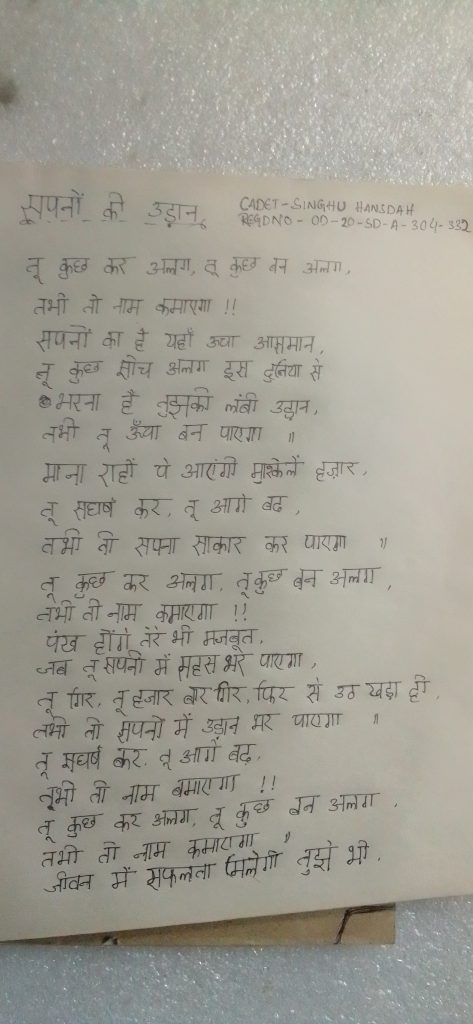 सपनों की उड़ान
CADET-SINGHU HANSDAH
REGDNO - OD-20-SD-A-304-332
तू कुछ कर अलग, तू कुछ बन अलग,
तभी तो नाम कमाएगा !!
सपनों का है यहाँ ऊचा आसमान,
तू कुछ सोच अलग इस दुनिया से
भरना है तुझको लंबी उड़ान,
तभी तू ऊँचा बन पाएगा ॥
माना राहों पे आएंगी मुश्किलें हज़ार,
तू सघर्ष कर, तू आगे बढ़,
तभी तो सपना साकार कर पाएगा ॥
तू कुछ कर अलग, तू कुछ बन अलग,
तभी तो नाम कमाएगा !!
पंख होंगे तेरे भी मजबूत,
जब तू सपनों में साहस भरे पाएगा,
तू गिर, तू हजार बार गिर, फिर से उठ खड़ा हो,
तभी तो सपनों में उड़ान भर पाएगा ॥
तू सघर्ष कर, तू आगे बढ़,
तभी तो नाम कमाएगा !!
तू कुछ कर अलग, तू कुछ बन अलग,
तभी तो नाम कमाएगा ॥
जीवन में सफलता मिलेगी तुझे भी,